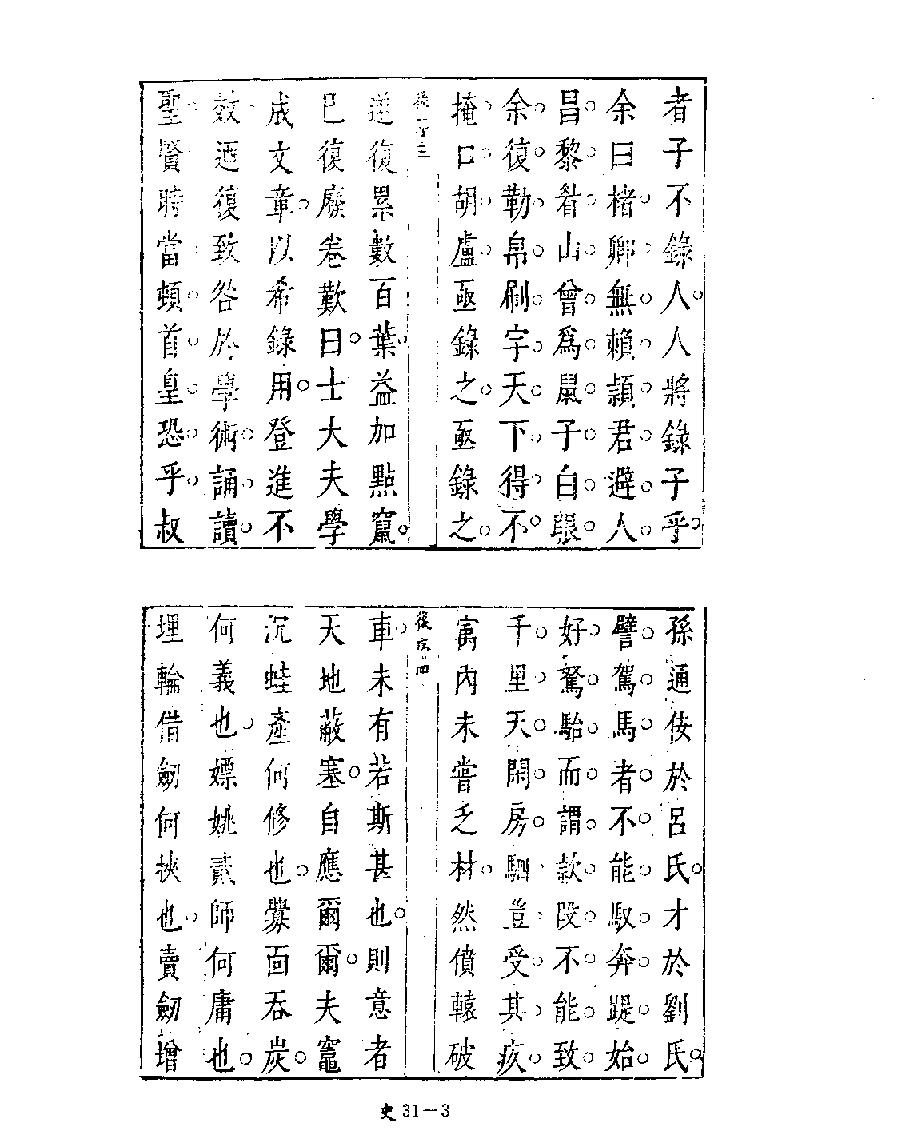 者子不錄人。人將錄子乎。
余曰楮卿無賴頴君避人。
昌黎䏍山曾爲鼠子白䟫
余復勒帛刷字天下得不
掩口胡盧亟錄之。亟錄之。
後 三
遂復累數百葉。益加點竄。
已復廢卷歎曰。士大夫學
成文章。以希錄用。登進不
效迺復致咎於學術。誦讀。
聖賢時當頓首皇恐乎叔
孫通佞於呂氏。才於劉氏。
譬駕馬者不能馭奔踶始
好駑駘而謂款段不能致
千里天閑房駟豈受其疾。
寓內未嘗乏材。然僨轅破
後 四
車。未有若斯甚也。則意者
天地蔽塞。自應爾爾。夫竈
沉蛙產何修也。釁面吞炭。
何義也。嫖姚貳師何庸也。
埋輪借劎何挾也。賣劎增
史 31—3